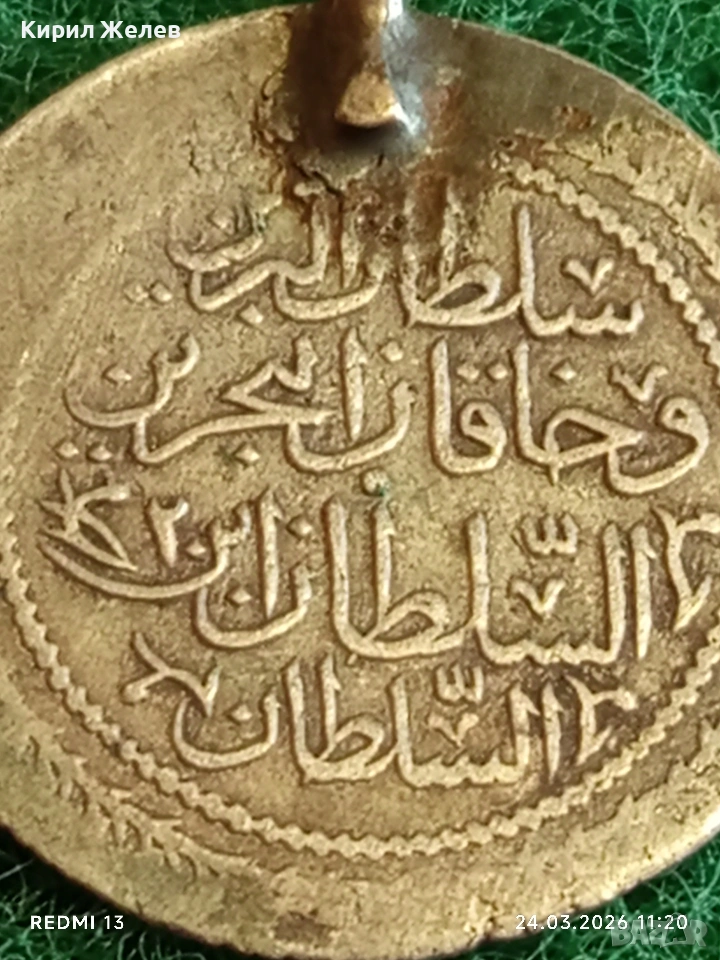 Кирил Желев
سلطان البرين
وخاقان البحرين
السلطان ابن
السلطان
REDMI 13
24.03.2026 11:20
BAZAR